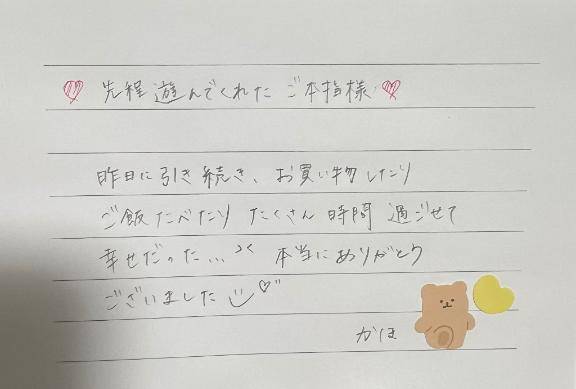 ♡ 先程遊んでくれた ご本指様 ♡
昨日に引き続き、お買い物したり
ご飯たべたり たくさん 時間 過ごせて
幸せだった... 本当にありがとう
ございました
かほ